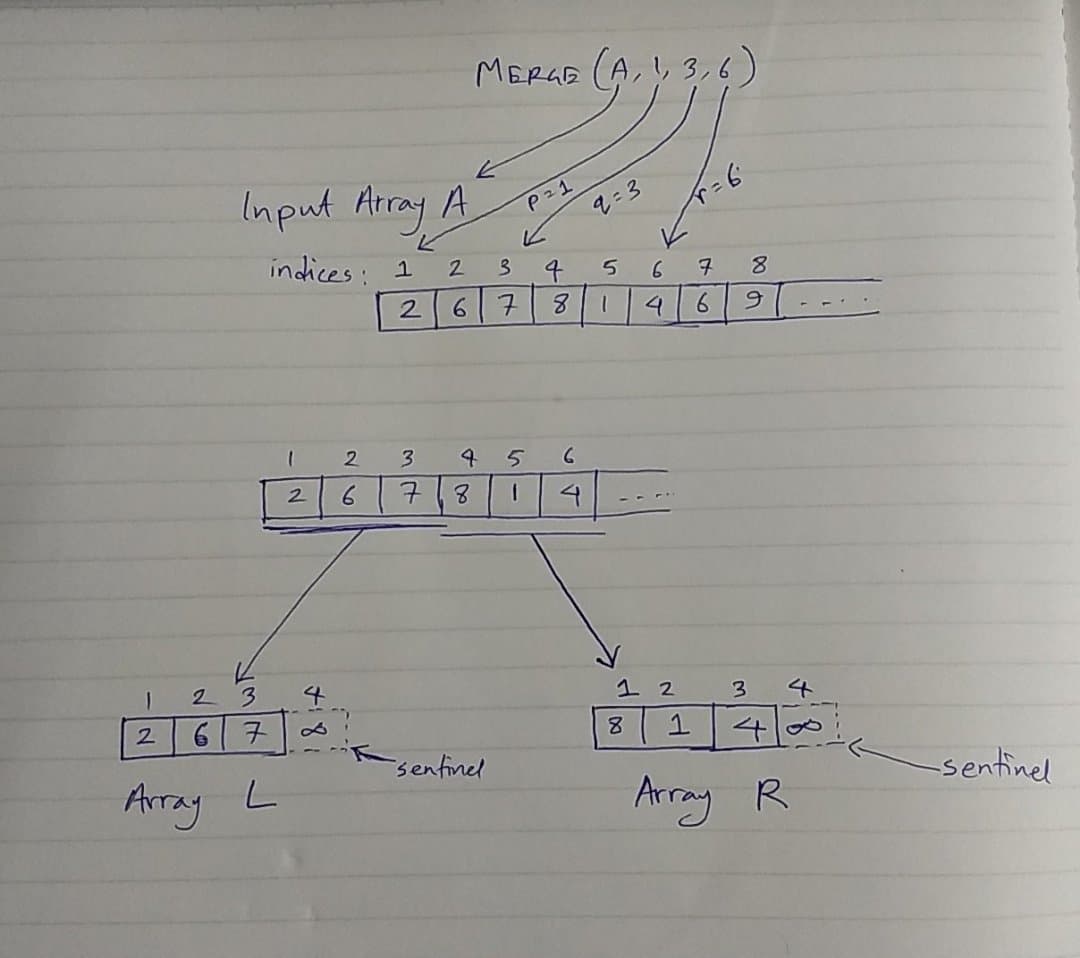 MERGE (A, 1, 3, 6)
Input Array A
p=1
q=3
r=6
indices: 1 2 3 4 5 6 7 8
2 6 7 8 1 4 6 9 ....
1 2 3 4 5 6
2 6 7 8 1 4 .....
1 2 3 4
2 6 7 ∞
sentinel
Array L
1 2 3 4
8 1 4 ∞
sentinel
Array R